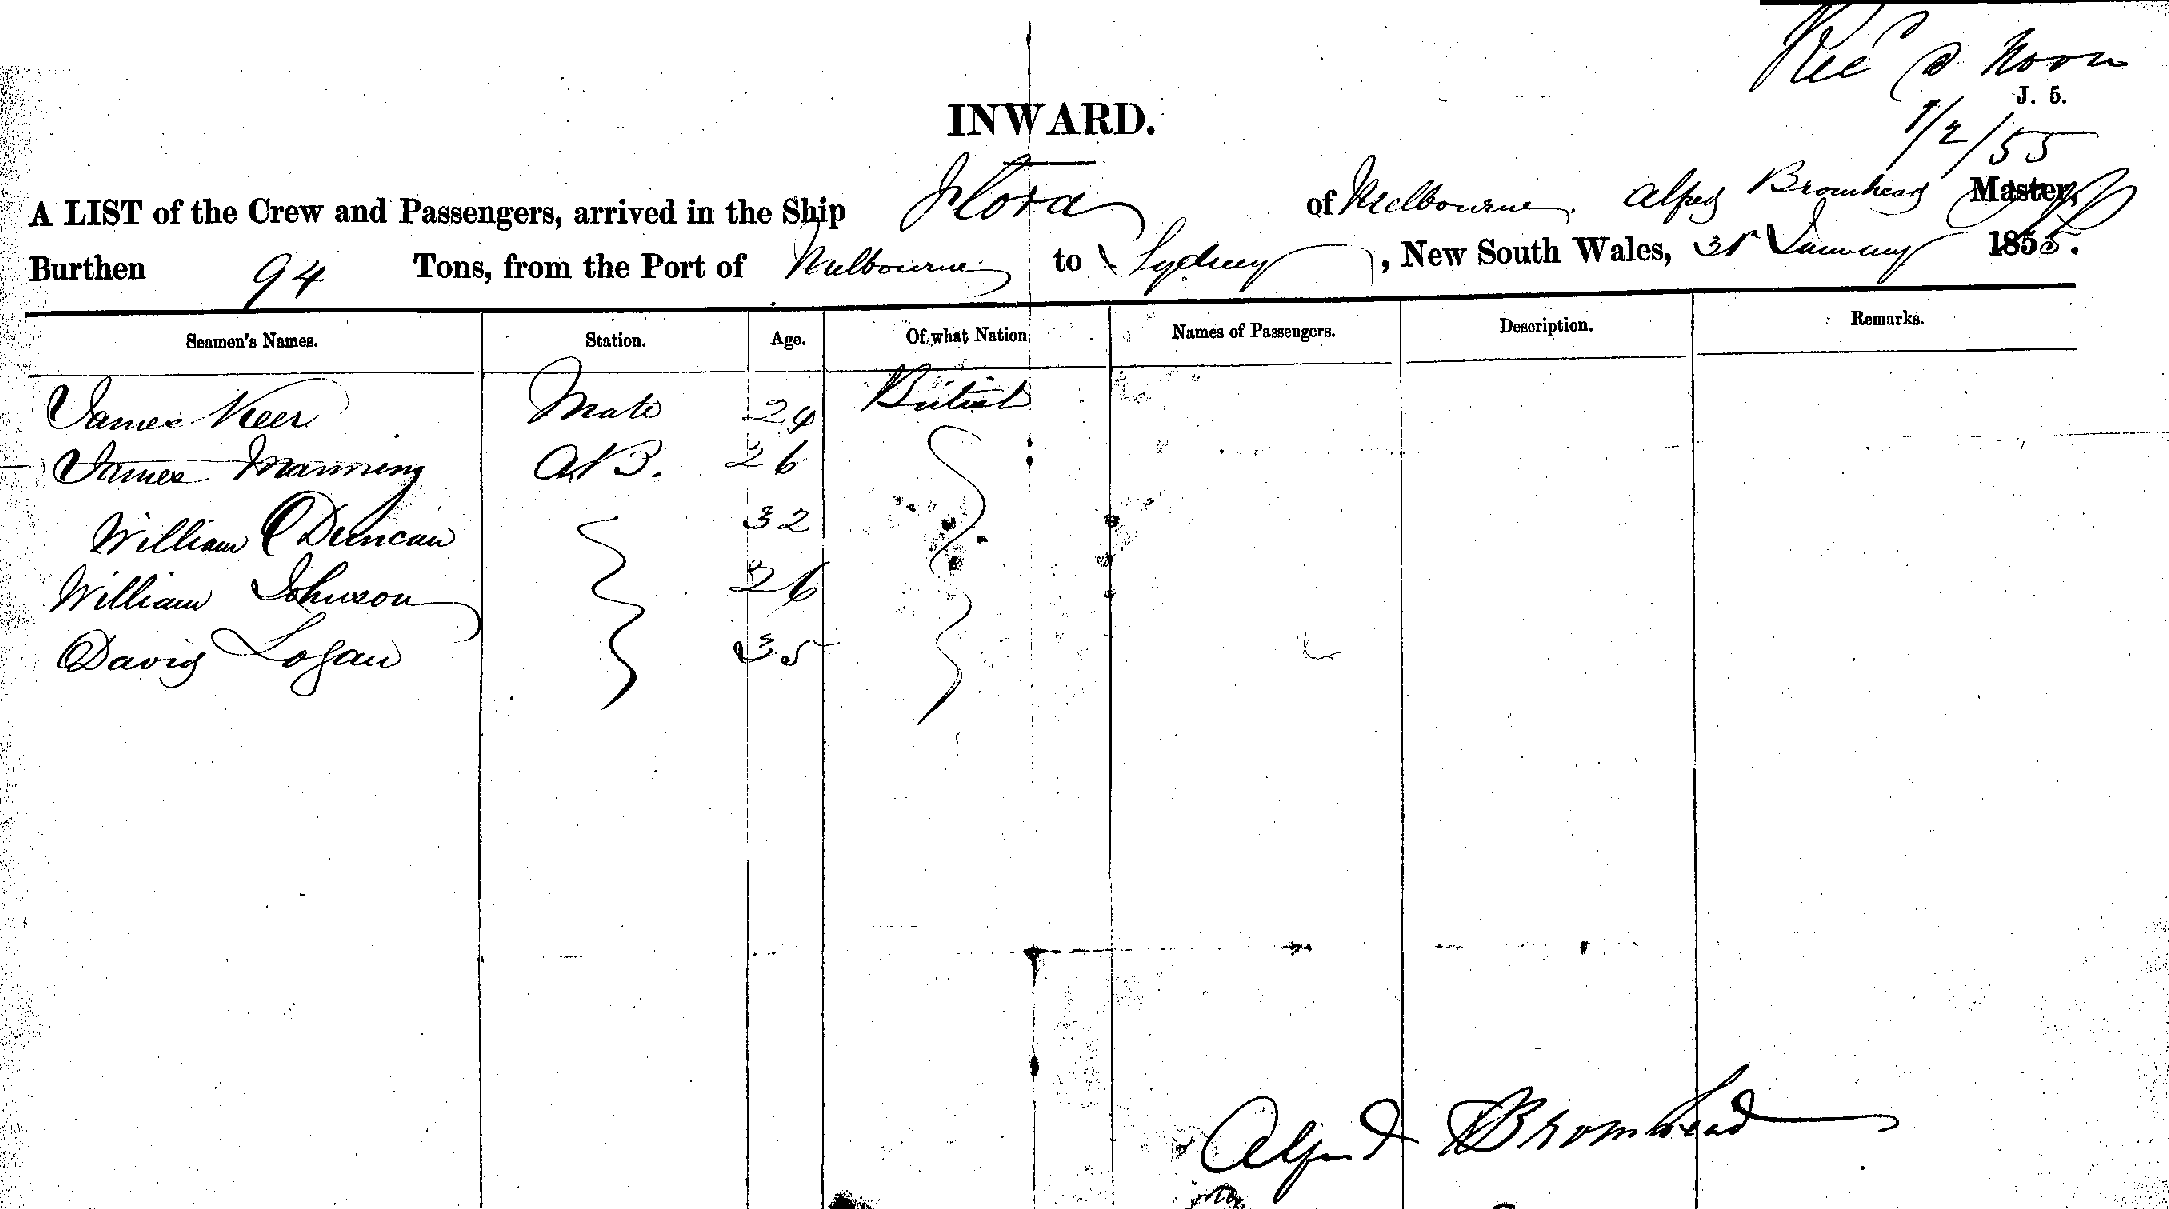 Rec^d @ Noon
J. 5.
1/2/55
INWARD.
A LIST of the Crew and Passengers, arrived in the Ship Flora of Melbourne, Alfred Bromhead Master,
Burthen 94 Tons, from the Port of Melbourne to Sydney, New South Wales, 31st January 1855.
Seamen's Names. Station. Age. Of what Nation Names of Passengers. Description. Remarks.
James Keer Mate 24 British
James Manning AB. 26
William Duncan 32
William Johnson 26
David Logan 35
Alfred Bromhead